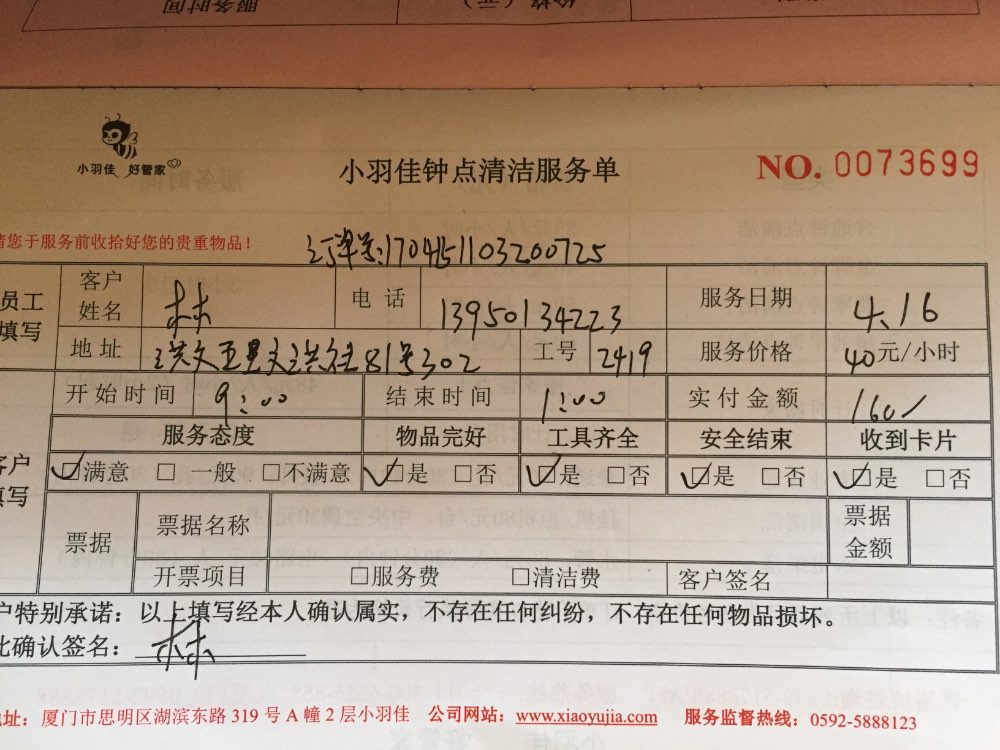 服务时间
小羽佳 好管家
小羽佳钟点清洁服务单
NO. 0073699
请您于服务前收拾好您的贵重物品！
订单号:1704151103200725
员工填写 客户姓名 林 电话 13950134223 服务日期 4.16
地址 洪文五里文洪社81号302 工号 2419 服务价格 40元/小时
开始时间 9:00 结束时间 1:00 实付金额 160/
客户填写 服务态度 物品完好 工具齐全 安全结束 收到卡片
☑满意 □一般 □不满意 ☑是 □否 ☑是 □否 ☑是 □否 ☑是 □否
票据 票据名称 票据金额
开票项目 □服务费 □清洁费 客户签名
户特别承诺：以上填写经本人确认属实，不存在任何纠纷，不存在任何物品损坏。
此确认签名：林
地址：厦门市思明区湖滨东路 319 号 A 幢 2 层小羽佳 公司网站：www.xiaoyujia.com 服务监督热线：0592-5888123